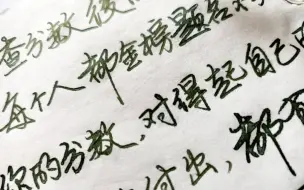 查分数後
每个人都金榜题名
你的分数,对得起自己
付出,都有